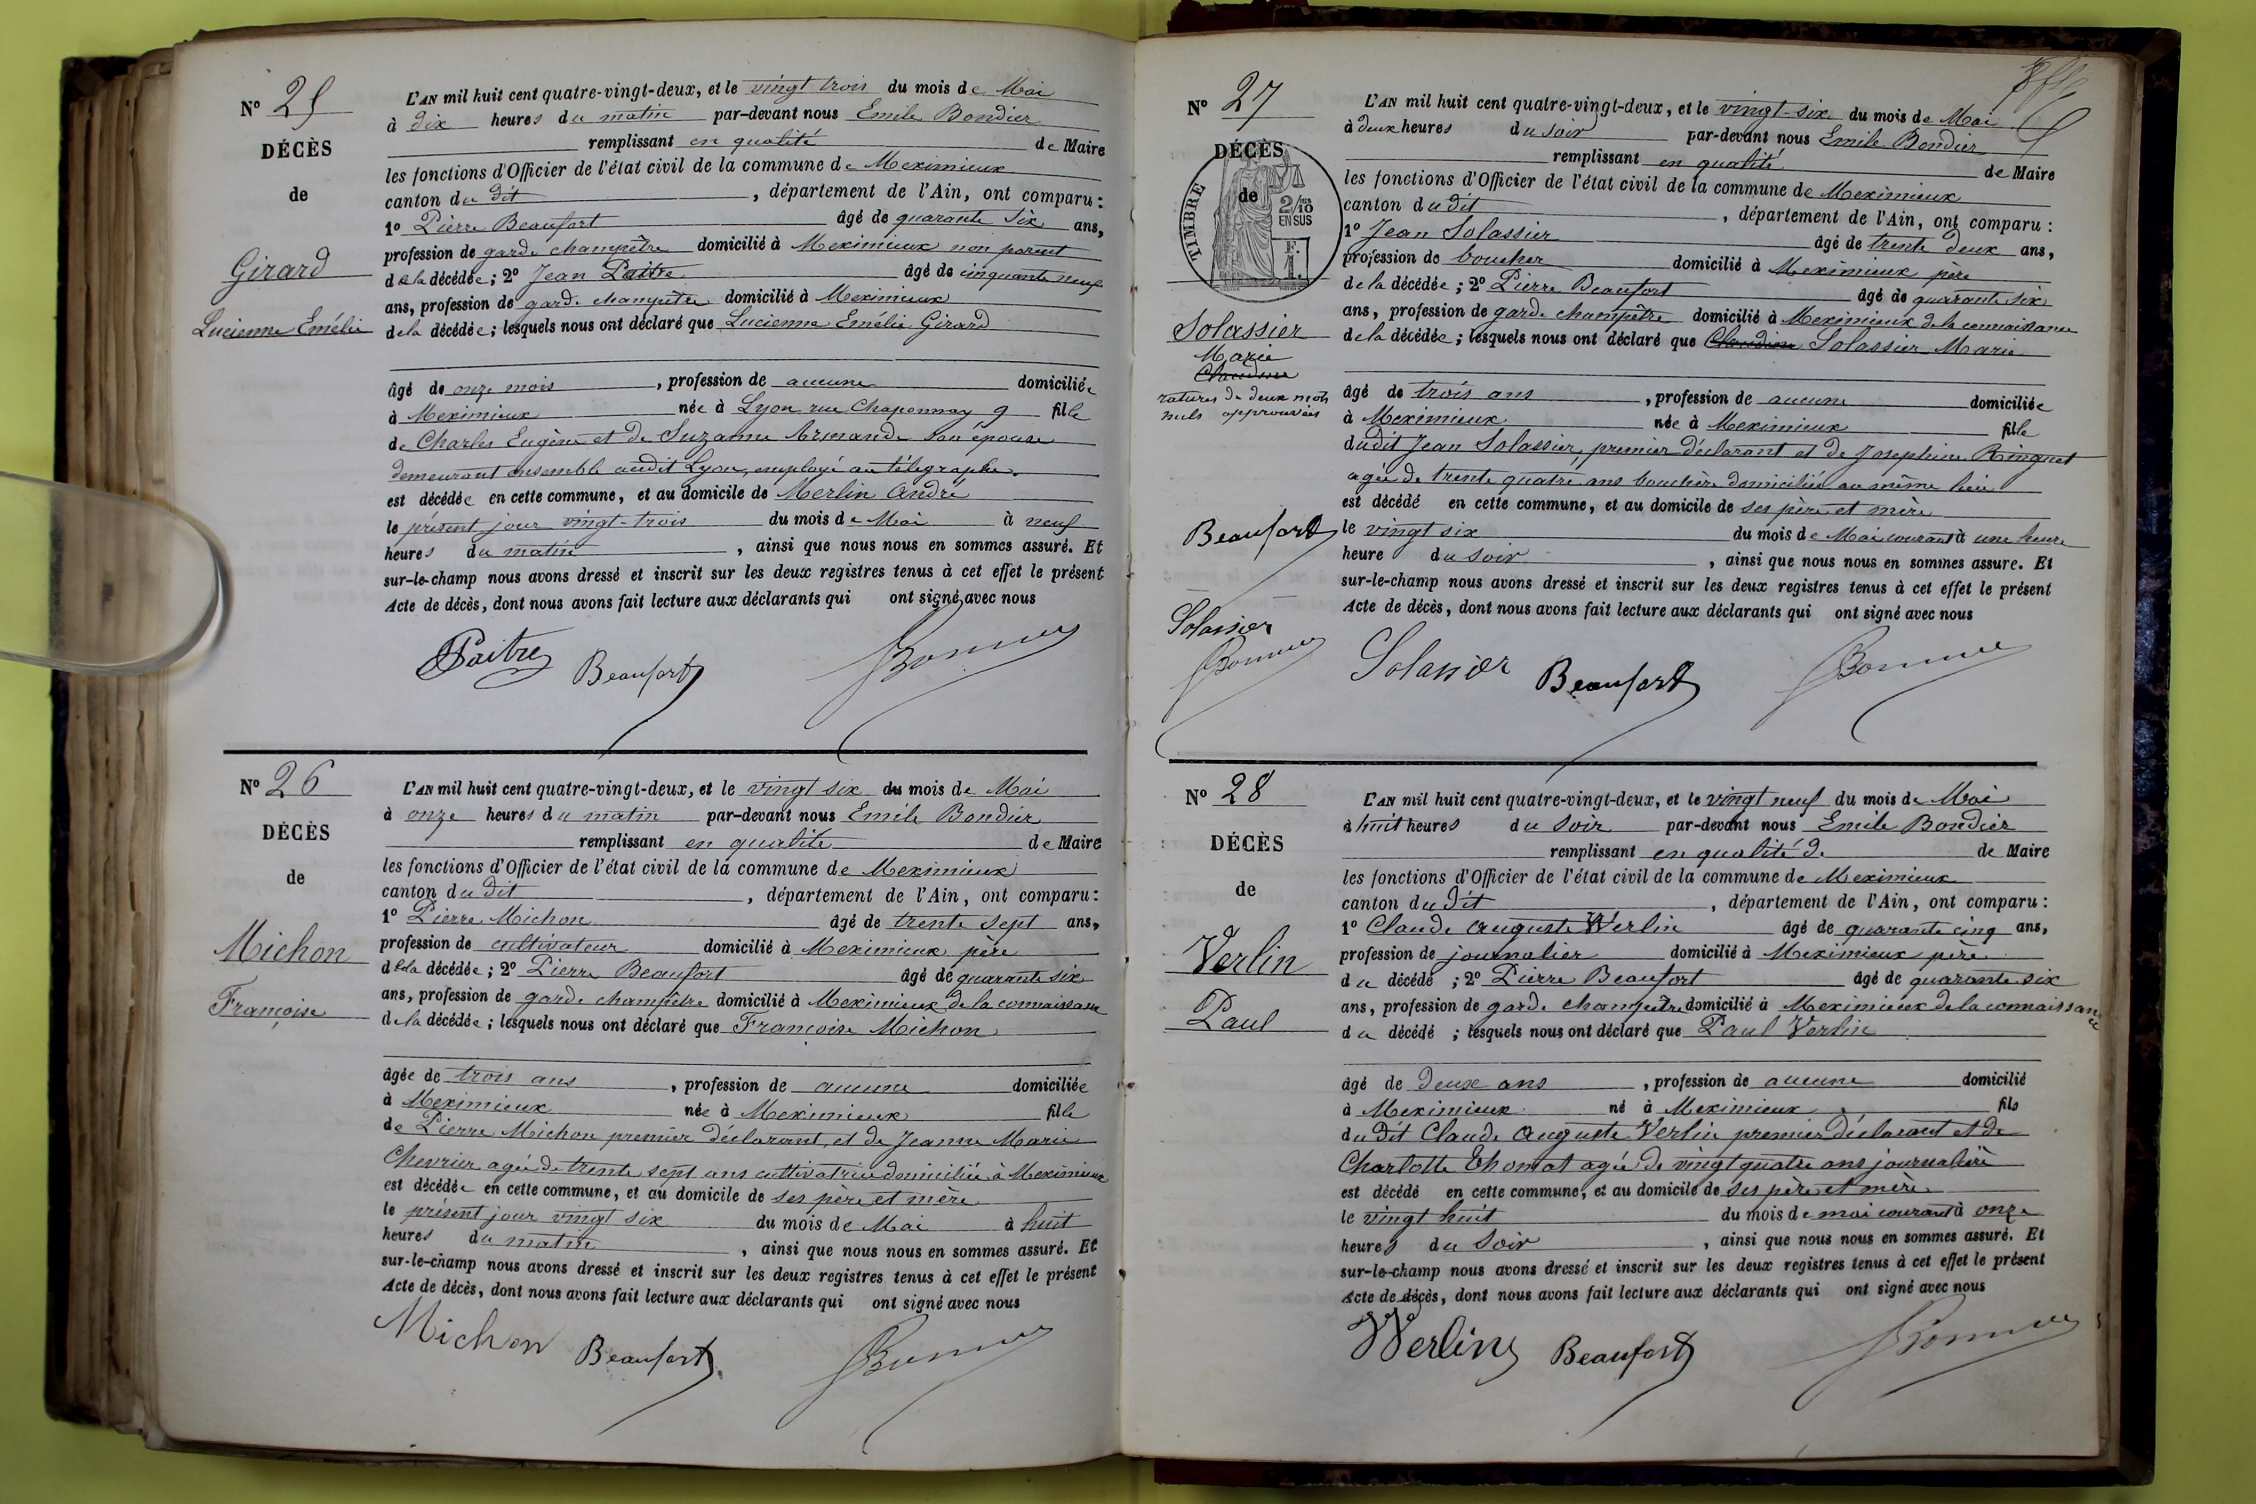 N° 25
DÉCÈS
de
Girard
Lucienne Emélie
L'AN mil huit cent quatre-vingt-deux, et le vingt trois du mois de Mai
à dix heures du matin par-devant nous Emile Bondier
remplissant en qualité de Maire
les fonctions d'Officier de l'état civil de la commune de Meximieux
canton du dit, département de l'Ain, ont comparu :
1° Pierre Beaufort âgé de quarante six ans,
profession de garde champêtre domicilié à Meximieux non parent
de la décédée ; 2° Jean Paitre âgé de cinquante neuf
ans, profession de garde champêtre domicilié à Meximieux
de la décédée ; lesquels nous ont déclaré que Lucienne Emélie Girard
âgé de onze mois, profession de aucune domiciliée
à Meximieux née à Lyon rue Chaponnay 9 fille
de Charles Eugène et de Suzanne Armande son épouse
demeurant ensemble audit Lyon, employé au télégraphe.
est décédée en cette commune, et au domicile de Merlin André
le présent jour vingt-trois du mois de Mai à neuf
heures du matin, ainsi que nous nous en sommes assuré. Et
sur-le-champ nous avons dressé et inscrit sur les deux registres tenus à cet effet le présent
Acte de décès, dont nous avons fait lecture aux déclarants qui ont signé avec nous
Paitre Beaufort
N° 26
DÉCÈS
de
Michon
Françoise
L'AN mil huit cent quatre-vingt-deux, et le vingt six du mois de Mai
à onze heures du matin par-devant nous Emile Bondier
remplissant en qualité de Maire
les fonctions d'Officier de l'état civil de la commune de Meximieux
canton du dit, département de l'Ain, ont comparu :
1° Pierre Michon âgé de trente sept ans,
profession de cultivateur domicilié à Meximieux père
de la décédée ; 2° Pierre Beaufort âgé de quarante six
ans, profession de garde champêtre domicilié à Meximieux de la connaissance
de la décédée ; lesquels nous ont déclaré que Françoise Michon
âgée de trois ans, profession de aucune domiciliée
à Meximieux née à Meximieux fille
de Pierre Michon premier déclarant, et de Jeanne Marie
Chevrier agée de trente sept ans cultivatrice domiciliée à Meximieux
est décédée en cette commune, et au domicile de ses père et mère
le présent jour vingt six du mois de Mai à huit
heures du matin, ainsi que nous nous en sommes assuré. Et
sur-le-champ nous avons dressé et inscrit sur les deux registres tenus à cet effet le présent
Acte de décès, dont nous avons fait lecture aux déclarants qui ont signé avec nous
Michon Beaufort
N° 27
DÉCÈS
de
TIMBRE
2/10
EN SUS
F.
1.
Solassier
Marie
Claudine
ratures de deux mots
nuls approuvées
Beaufort
Solassier
L'AN mil huit cent quatre-vingt-deux, et le vingt-six du mois de Mai
à deux heures du soir par-devant nous Emile Bondier
remplissant en qualité de Maire
les fonctions d'Officier de l'état civil de la commune de Meximieux
canton du dit, département de l'Ain, ont comparu :
1° Jean Solassier âgé de trente deux ans,
profession de boucher domicilié à Meximieux père
de la décédée ; 2° Pierre Beaufort âgé de quarante six
ans, profession de garde champêtre domicilié à Meximieux de la connaissance
de la décédée ; lesquels nous ont déclaré que Claudine Solassier Marie
âgé de trois ans, profession de aucune domiciliée
à Meximieux née à Meximieux fille
du dit Jean Solassier, premier déclarant et de Josephine Ringuet
agée de trente quatre ans bouchère domiciliée au même lieu
est décédé en cette commune, et au domicile de ses père et mère
le vingt six du mois de Mai courant à une heure
heure du soir, ainsi que nous nous en sommes assuré. Et
sur-le-champ nous avons dressé et inscrit sur les deux registres tenus à cet effet le présent
Acte de décès, dont nous avons fait lecture aux déclarants qui ont signé avec nous
Solassier Beaufort
N° 28
DÉCÈS
de
Verlin
Paul
L'AN mil huit cent quatre-vingt-deux, et le vingt neuf du mois de Mai
à huit heures du soir par-devant nous Emile Bondier
remplissant en qualité de de Maire
les fonctions d'Officier de l'état civil de la commune de Meximieux
canton du dit, département de l'Ain, ont comparu :
1° Claude Auguste Werlin âgé de quarante cinq ans,
profession de journalier domicilié à Meximieux père
du décédé ; 2° Pierre Beaufort âgé de quarante six
ans, profession de garde champêtre domicilié à Meximieux de la connaissance
du décédé ; lesquels nous ont déclaré que Paul Verlin
âgé de deux ans, profession de aucune domicilié
à Meximieux né à Meximieux fils
du dit Claude Auguste Verlin premier déclarant et de
Charlotte Thomat agée de vingt quatre ans journalière
est décédé en cette commune, et au domicile de ses père et mère
le vingt huit du mois de mai courant à onze
heures du soir, ainsi que nous nous en sommes assuré. Et
sur-le-champ nous avons dressé et inscrit sur les deux registres tenus à cet effet le présent
Acte de décès, dont nous avons fait lecture aux déclarants qui ont signé avec nous
Werlin Beaufort